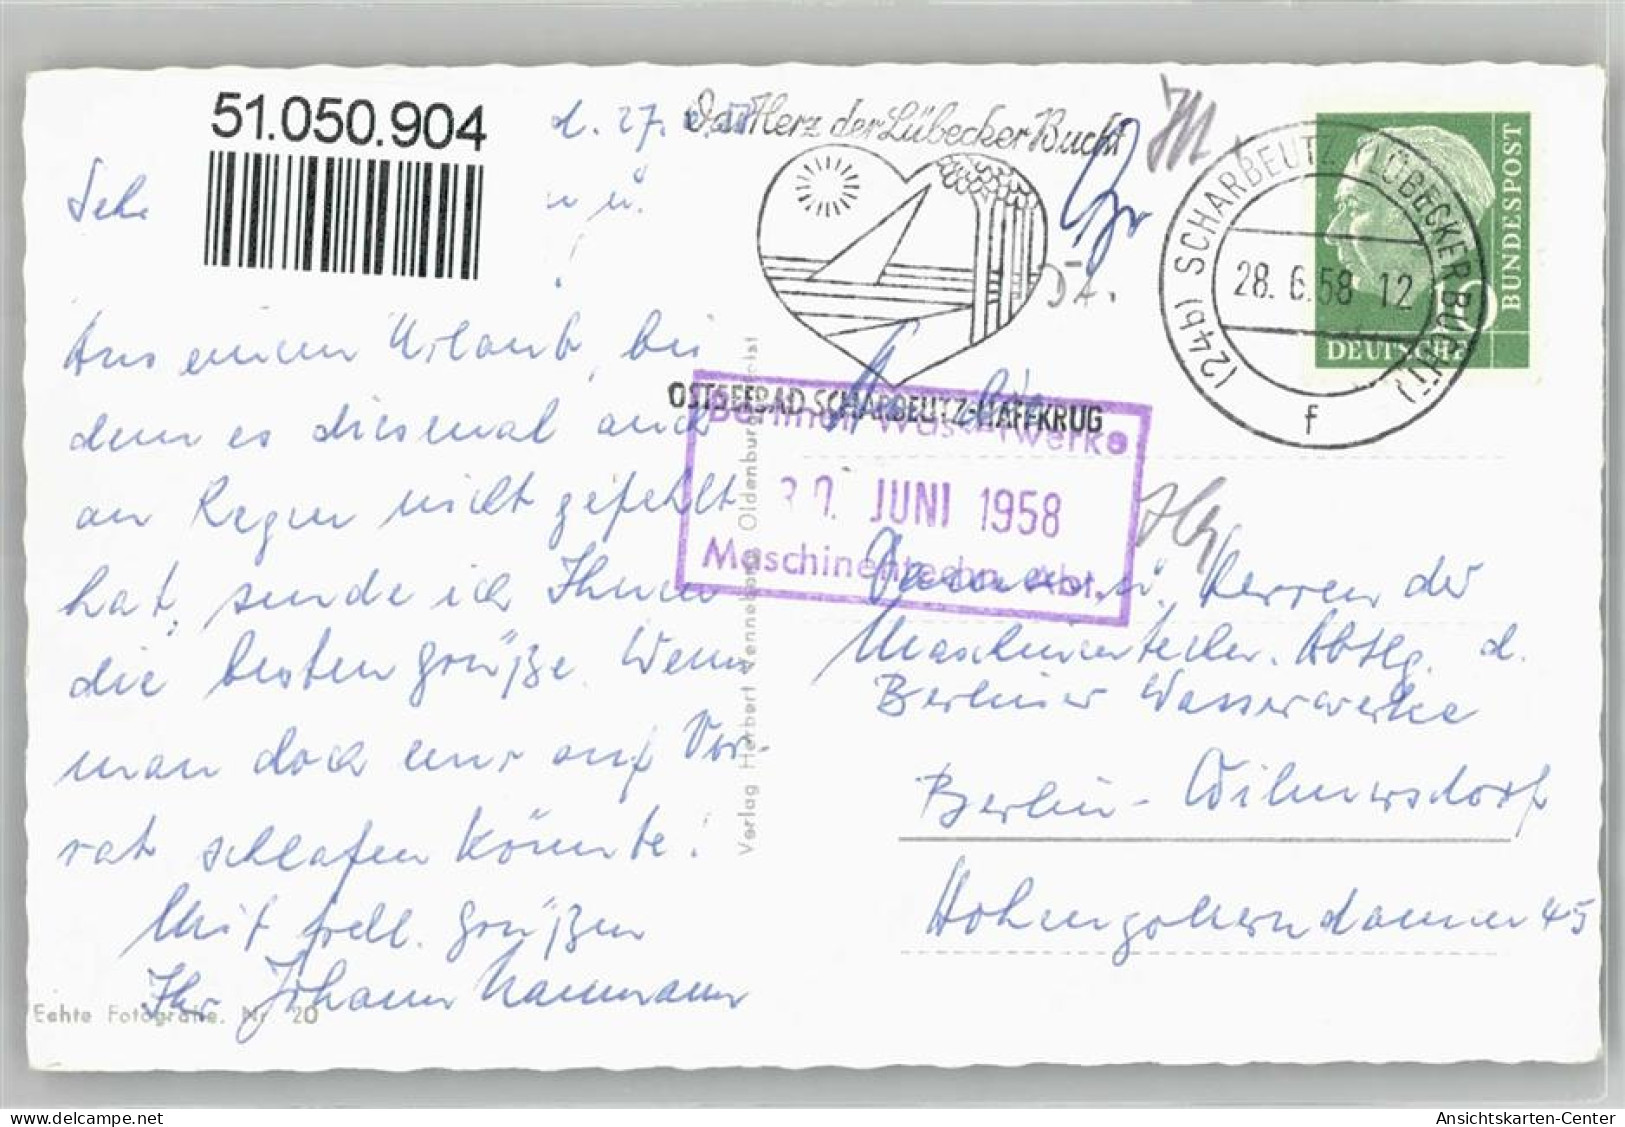 51.050.904
d. 27.
Sehr
u.
Aus einem Urlaub, bei
dem es diesmal auch
an Regen nicht gefehlt
hat, sende ich Ihnen
die besten Grüße. Wenn
man doch nur auf Vor-
rat schlafen könnte!
Mit frdl. Grüßen
Ihr Johann Naumann
Echte Fotografie. Nr. 20
Verlag Herbert Oldenburg
Das Herz der Lübecker Bucht
OSTSEEBAD SCHARBEUTZ-HAFFKRUG
(24b) SCHARBEUTZ (LÜBECKER BUCHT)
28.6.58 12
f
DEUTSCHE
BUNDESPOST
10
Berliner Wasserwerke
30. JUNI 1958
Maschinentechn. Abt.
Damen u. Herren der
Maschinentechn. Abtlg. d.
Berliner Wasserwerke
Berlin-Wilmersdorf
Hohenzollerndamm 45
Ansichtskarten-Center